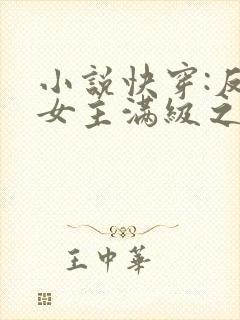 小說快穿:反
女主滿級之
王中華